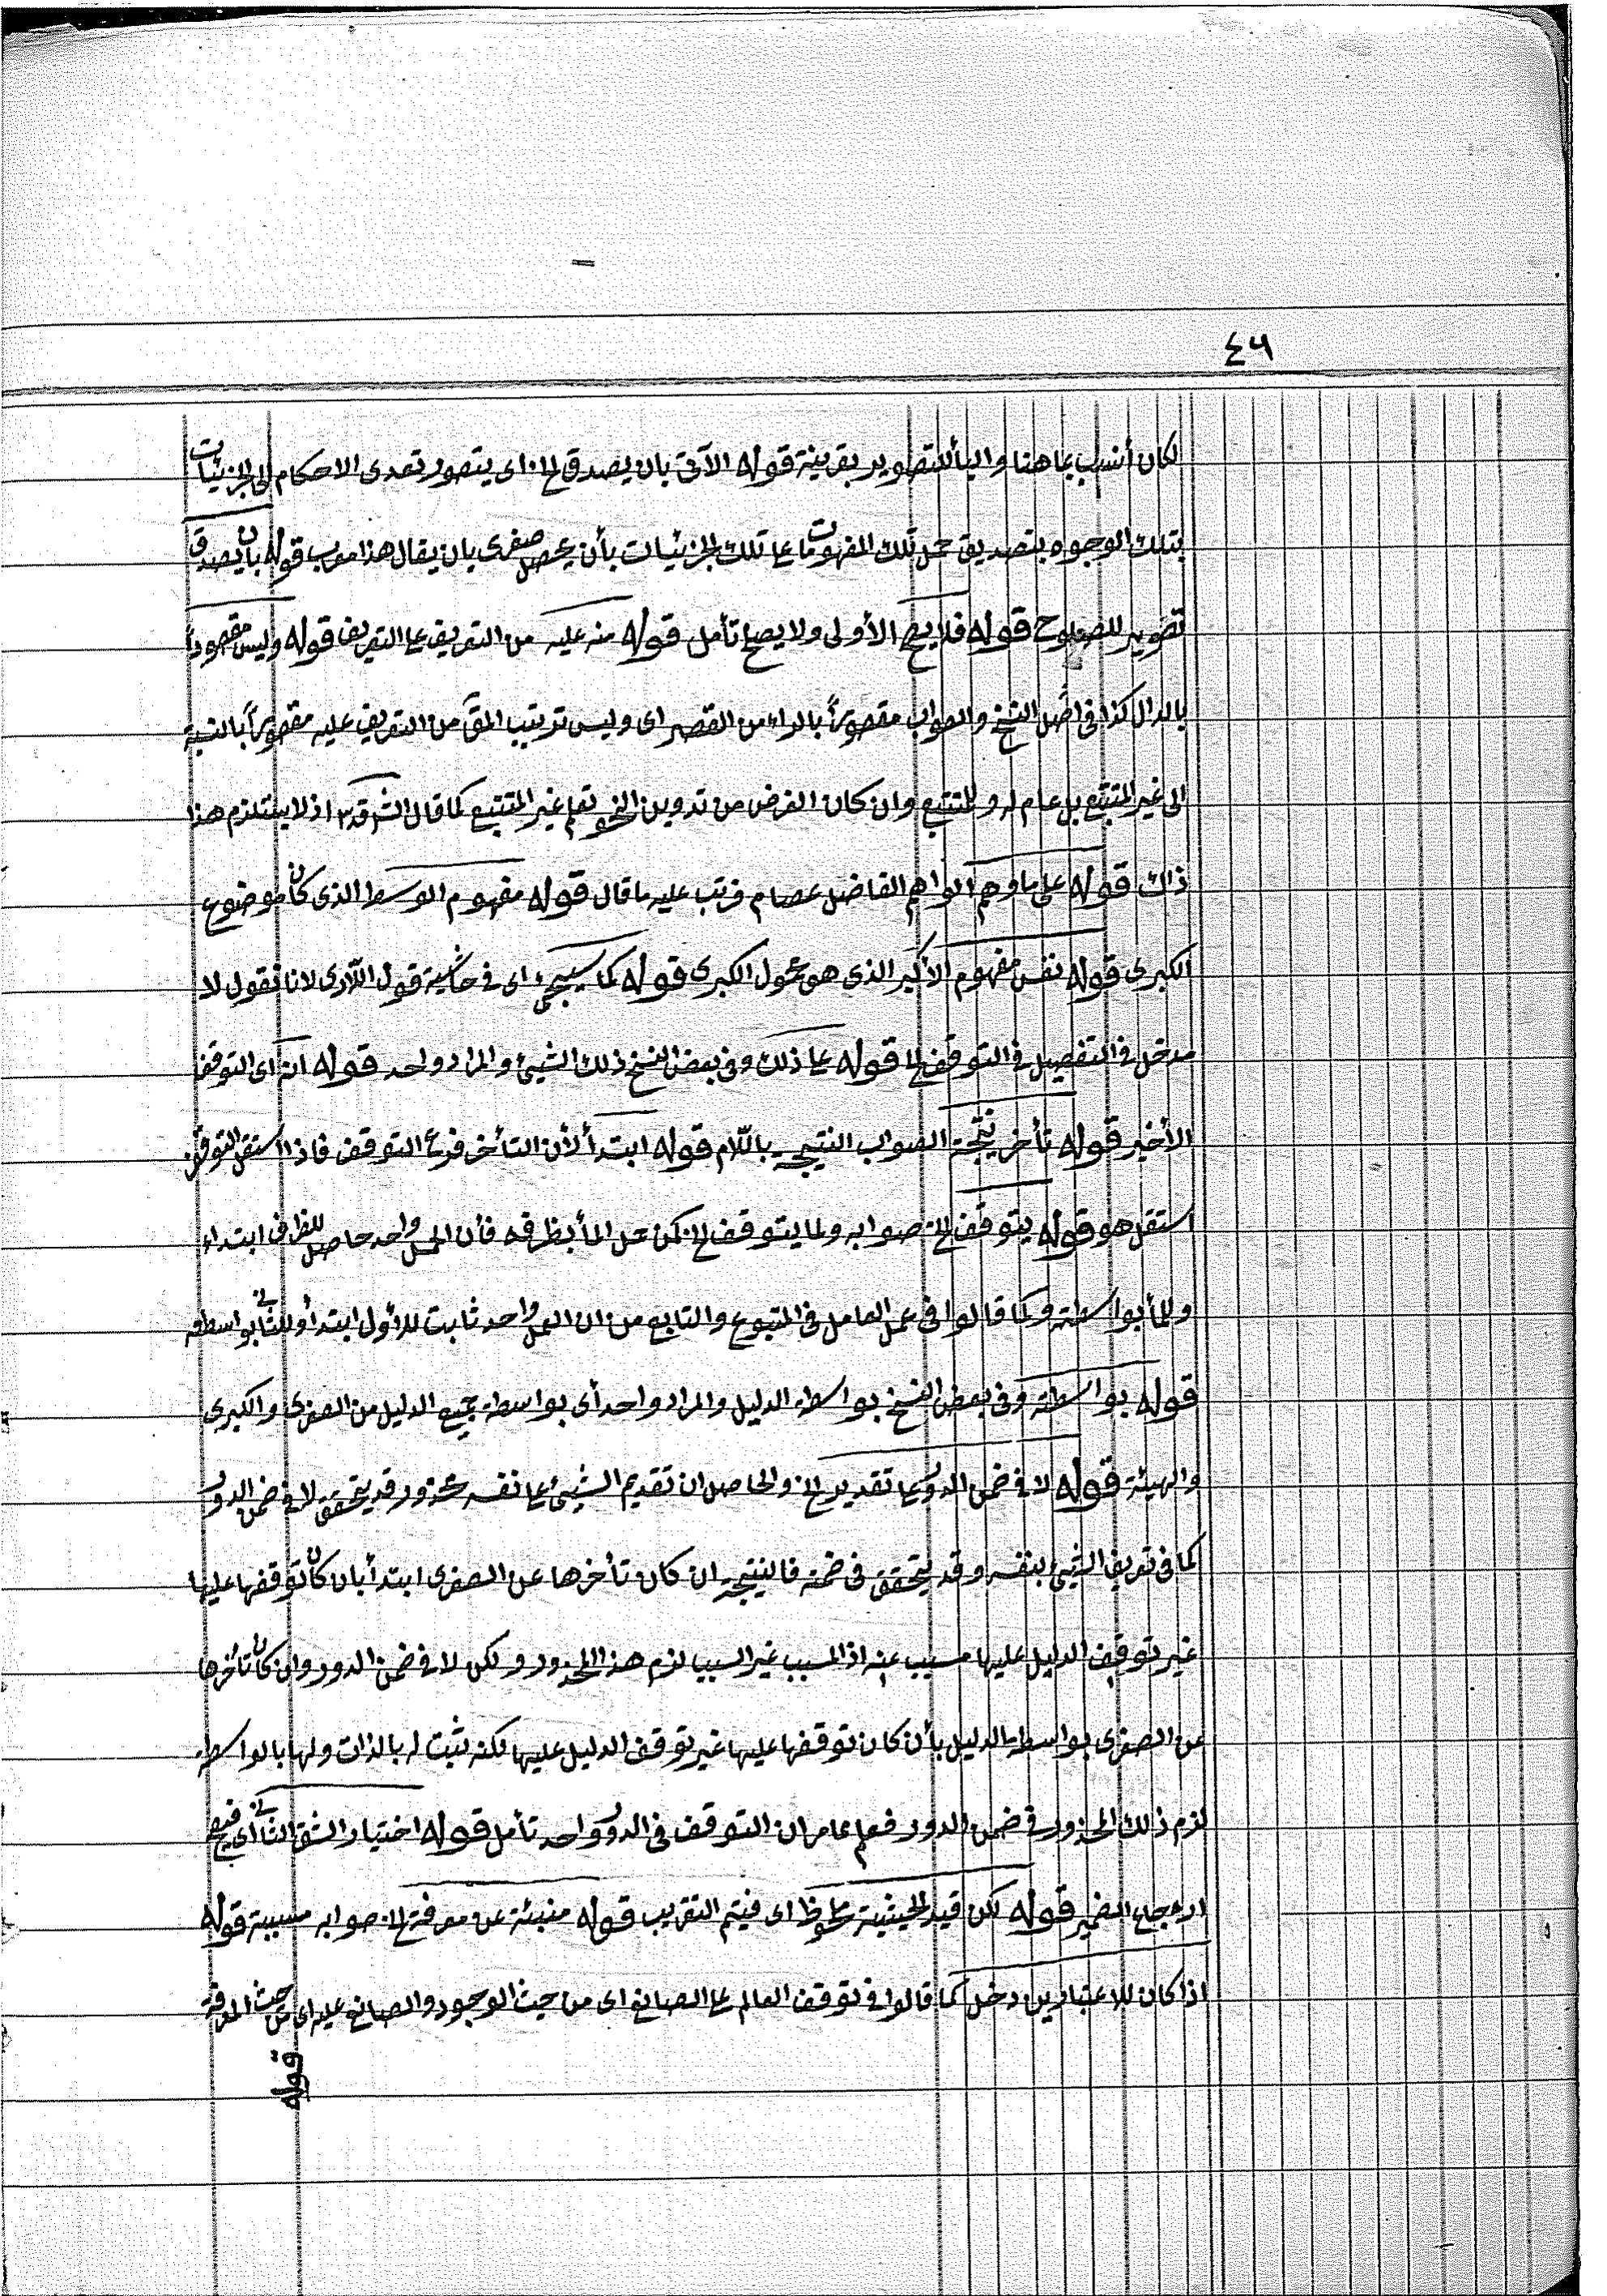 ٤٦
لكان أنسب بما هنا والبأ للتصوير بقرينة قوله الآتى بان يصدق الخ اى يتصور تعدى الاحكام الى الجزئيات
بتلك الوجوه بتصديق حمل تلك المفهومات على تلك الجزئيات بأن يحصل صغرى بان يقال هذا معرب قوله بان يصدق
تصوير للصلوح قوله فلا يصح الأولى ولا يصح تأمل قوله منه عليه من التعريف على التعريف قوله وليس مقصوداً
بالدال كذا فى أصل النسخ والصواب مقصوراً بالراء من القصر اى وليس ترتيب المق من التعريف عليه مقصوراً بالنسبة
الى غير المتتبع بل عام له وللمتتبع وان كان الغرض من تدوين النحو تعليم غير المتتبع كما قال الش قدس اذ لا يستلزم هذا
ذاك قوله على ما وهم الواهم الفاضل عصام فرتب عليه ما قال قوله مفهوم الوسط الذى كان موضوع
الكبرى قوله نفس مفهوم الأكبر الذى هو محمول الكبرى قوله كما سيجئ اى فى حاشية قول اللارى لانا نقول لا
مدخل فى التفصيل فى التوقف الخ قوله على ذلك وفى بعض النسخ ذلك الشيئ والمراد واحد قوله انه اى التوقف
الأخير قوله تأخر نتيجة الصواب النتيجة باللام قوله ابتدأ لأن التأخر فرع التوقف فاذا استقل التوقف
استقل هو قوله يتوقف الخ صوابه ولما يتوقف الخ لكن حل الما بظرفه فأن الحمل واحد حاصل للظرف ابتداء
وللما بواسطته وكما قالوا فى عمل العامل فى المتبوع والتابع من ان العمل واحد ثابت للأول ابتدأ وللثانى بواسطته
قوله بواسطته وفى بعض النسخ بواسطة الدليل والمراد واحد أى بواسطة جميع الدليل من الصغرى والكبرى
والهيئة قوله لا فى ضمن الدور على تقدير الخ والحاصل ان تقديم الشيئ على نفسه محذور قد يتحقق لا فى ضمن الدور
كما فى تعريف الشيئ بنفسه وقد يتحقق فى ضمنه فالنتيجة ان كان تأخرها عن الصغرى ابتدأ بان كان توقفها عليها
غير توقف الدليل عليها مسبب عنه اذ المسبب غير السبب لزم هذا المحذور ولكن لا فى ضمن الدور وان كان تأخرها
عن الصغرى بواسطة الدليل بأن كان توقفها عليها غير توقف الدليل عليها لكنه ثبت له بالذات ولها بالواسطة
لزم ذلك المحذور فى ضمن الدور فعلم مما مر ان التوقف فى الدور واحد تأمل قوله اختيار الشق الثانى اى فيصح
ارجاع الضمير قوله لكن قيد الحيثية ملحوظ اى فيتم التقريب قوله منبئة عن معرفة الخ صوابه مسببة قوله
اذا كان للاعتبارين دخل كما قالوا فى توقف العالم على الصانع اى من حيث الوجود والصانع عليه اى من حيث المعرفة
قوله